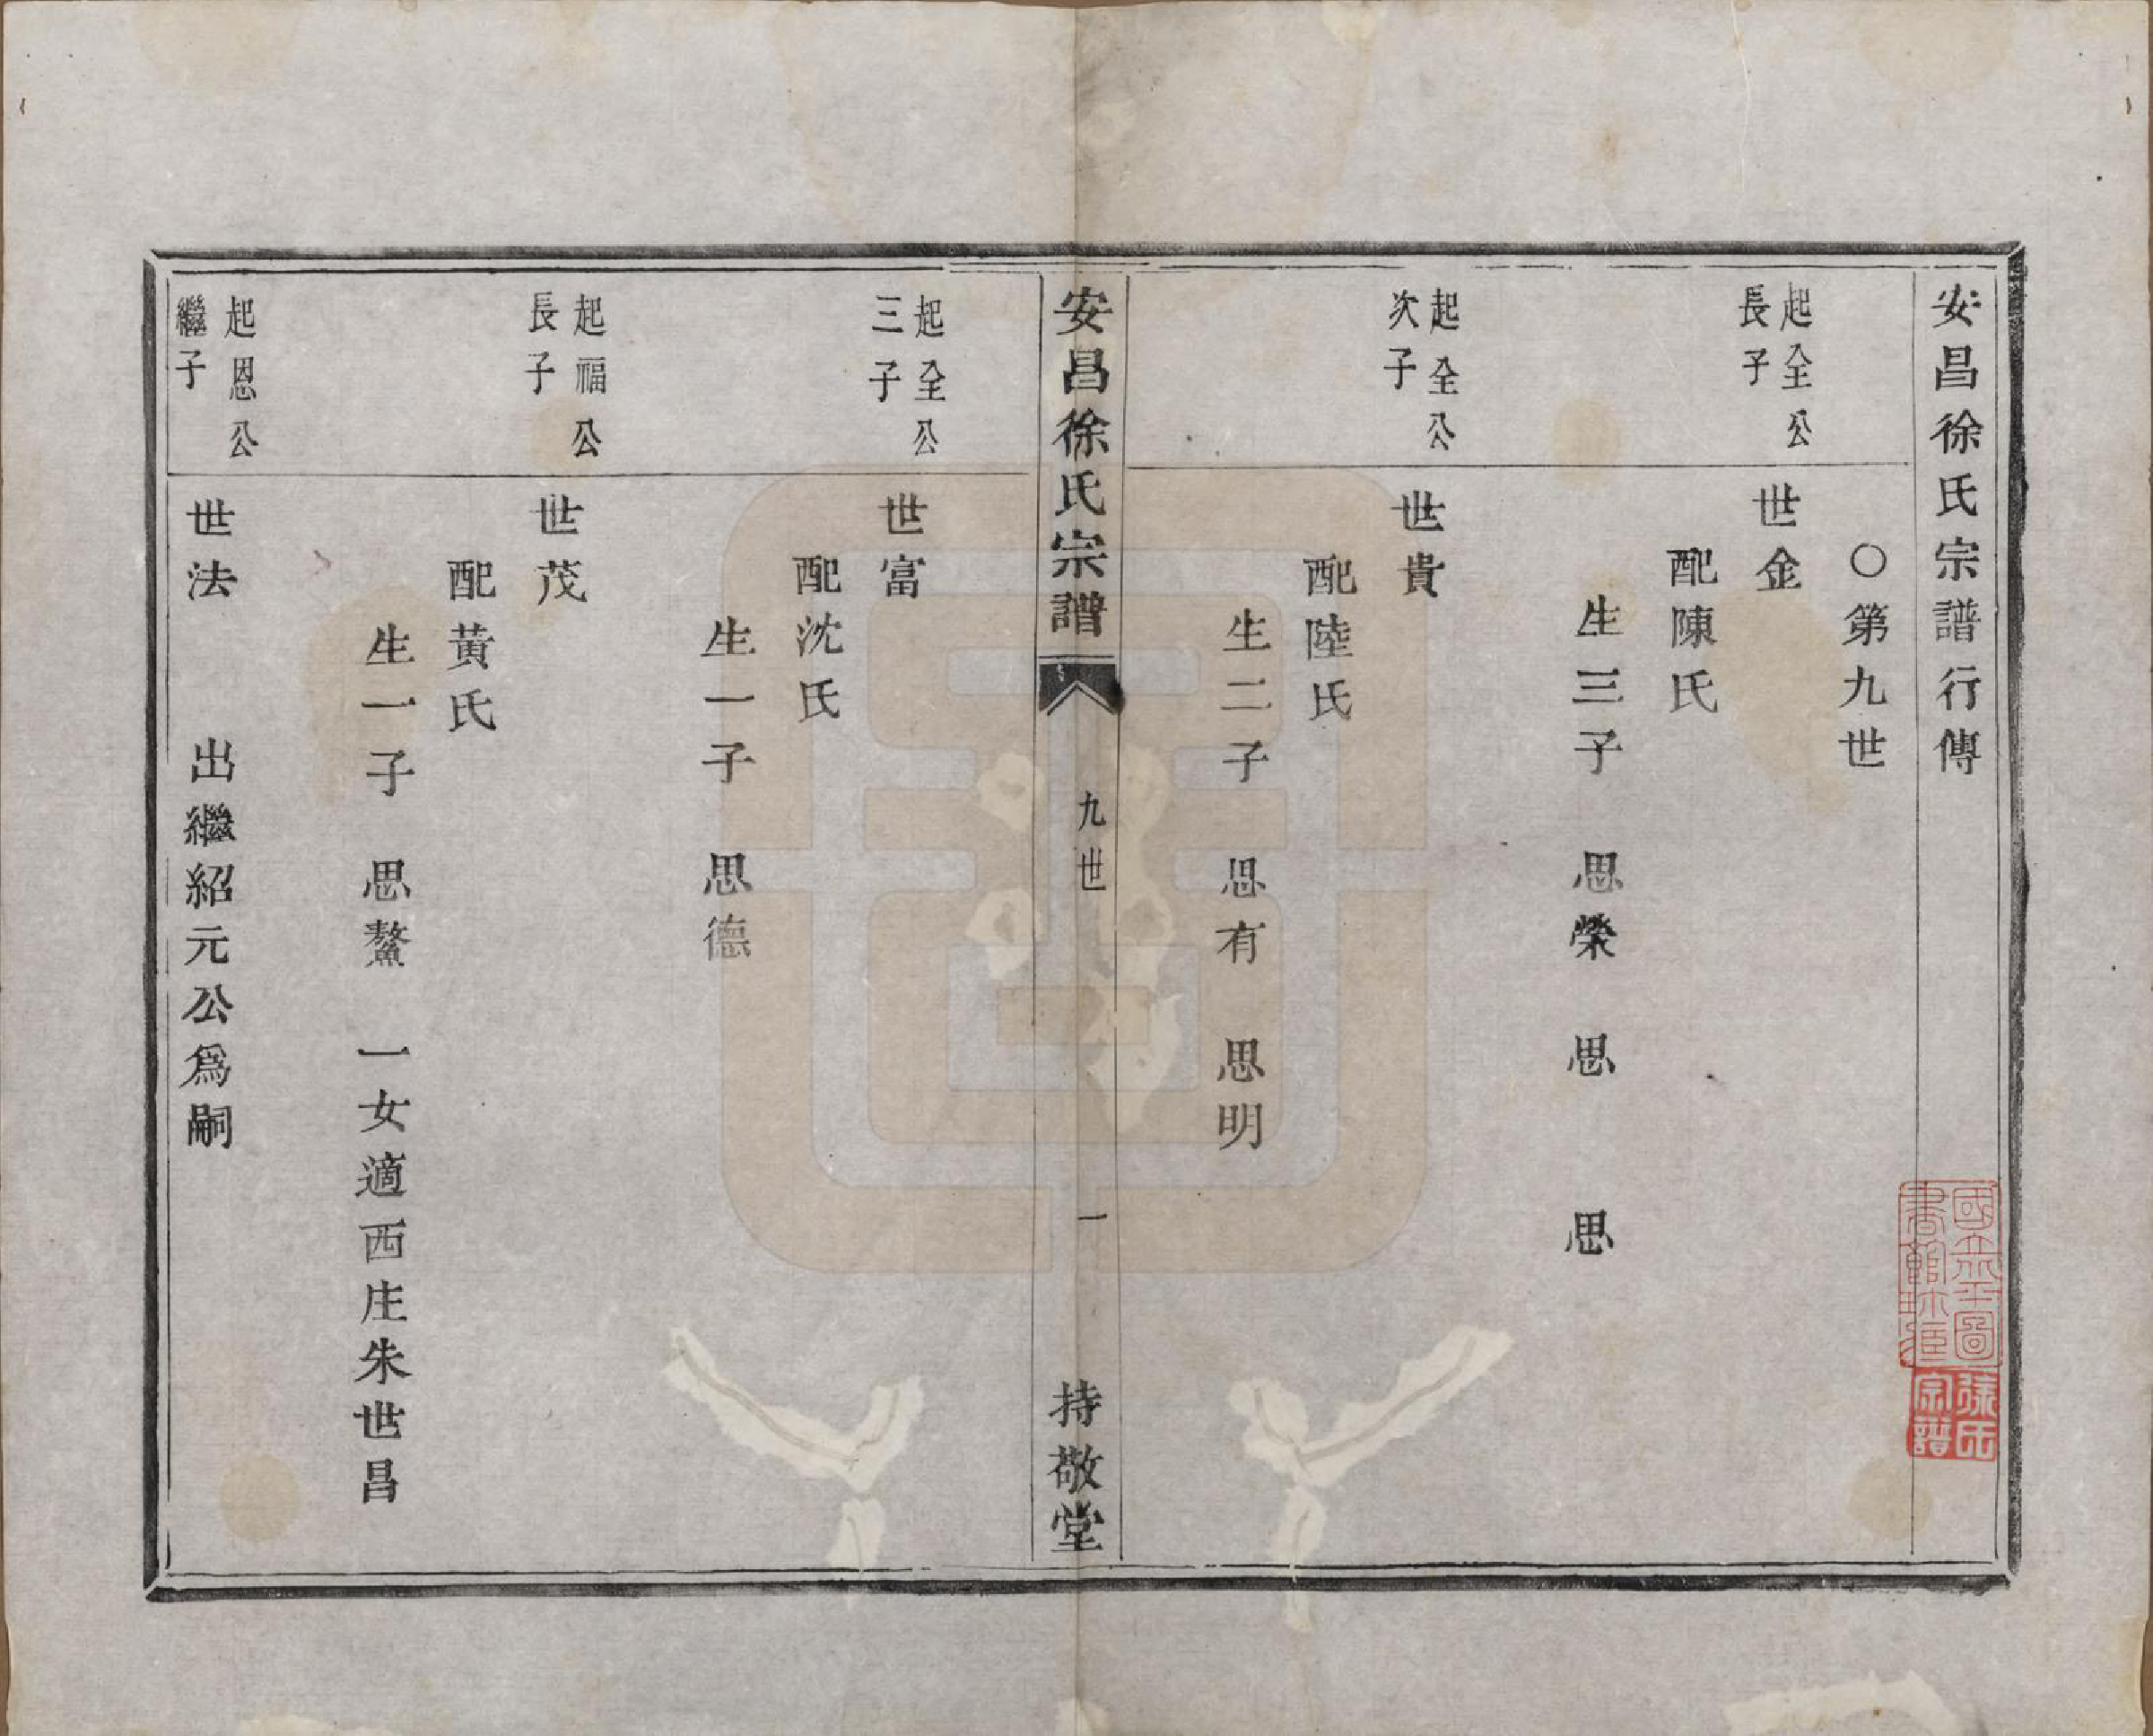 安昌徐氏宗譜行傳
○第九世
起全公
長子
世金
配陳氏
生三子 思榮 思 思
起全公
次子
世貴
配陸氏
生二子 思有 思明
安昌徐氏宗譜 九世 一 持敬堂
起全公
三子
世富
配沈氏
生一子 思德
起福公
長子
世茂
配黃氏
生一子 思鰲 一女適西庄朱世昌
起恩公
繼子
世法 出繼紹元公爲嗣
國立北平圖
書館珍藏
孫氏
宗譜